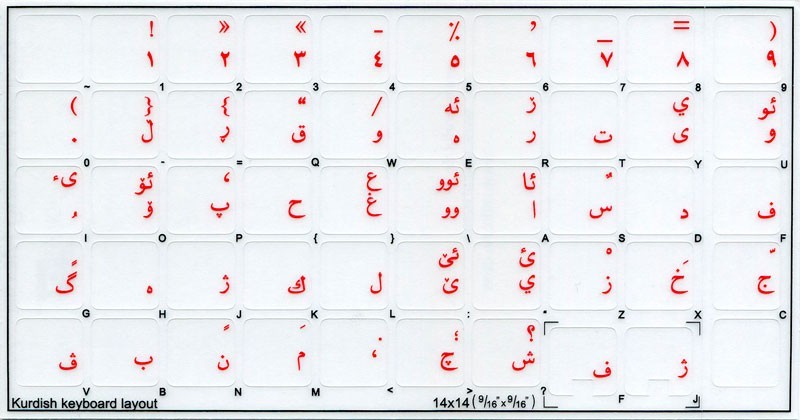 ! » « - ٪ , _ = )
١ ٢ ٣ ٤ ٥ ٦ ٧ ٨ ٩
~ 1 2 3 4 5 6 7 8 9
( } { “ / ئه ڒ ي ئو
. ڵ ڕ ق و ه ر ت ی و
0 - = Q W E R T Y U
یء ئۆ ، ع ئوو ئا
ۆ پ ح غ وو ا س د ف
I O P { } \ A S D F
ئێ ئ
گ ه ژ ك ل ێ ي ز خ ج
G H J K L : " Z X C
؛ ؟
ڤ ب ن م ، چ ش ف ژ
V B N M < > ? F J
Kurdish keyboard layout 14x14 (9/16"x9/16")